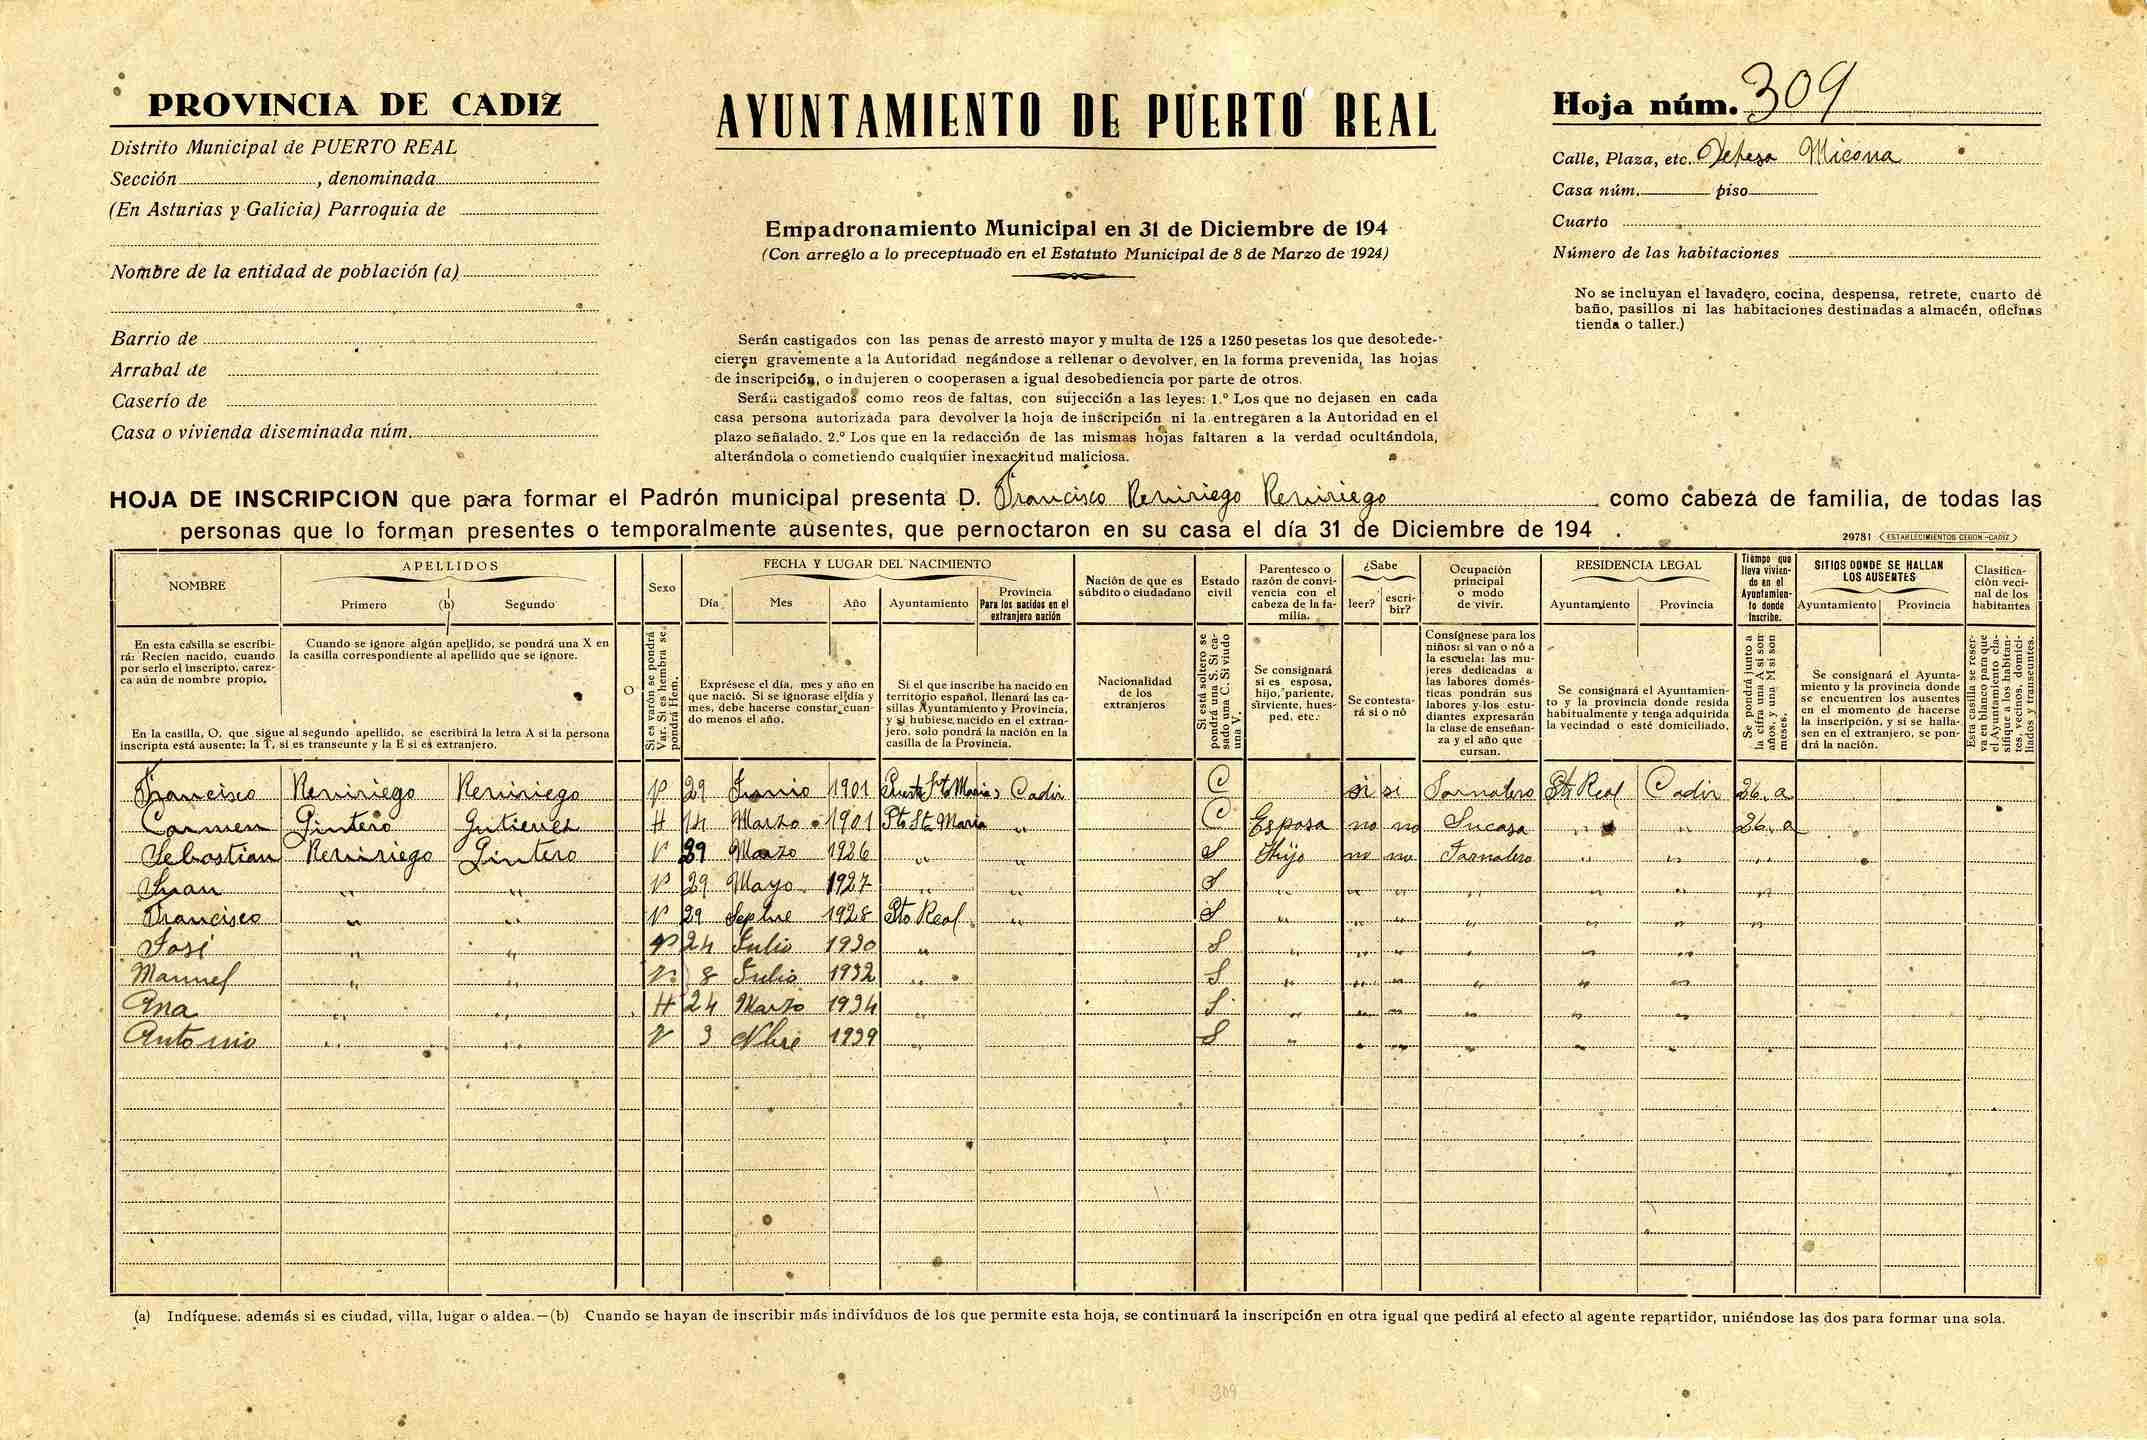 PROVINCIA DE CADIZ
Distrito Municipal de PUERTO REAL
Sección , denominada
(En Asturias y Galicia) Parroquia de
Nombre de la entidad de población (a)
Barrio de
Arrabal de
Caserío de
Casa o vivienda diseminada núm.
AYUNTAMIENTO DE PUERTO REAL
Empadronamiento Municipal en 31 de Diciembre de 194
(Con arreglo a lo preceptuado en el Estatuto Municipal de 8 de Marzo de 1924)
Serán castigados con las penas de arresto mayor y multa de 125 a 1250 pesetas los que desobede-
cieren gravemente a la Autoridad negándose a rellenar o devolver, en la forma prevenida, las hojas
de inscripción, o indujeren o cooperasen a igual desobediencia por parte de otros.
Serán castigados como reos de faltas, con sujección a las leyes: 1.º Los que no dejasen en cada
casa persona autorizada para devolver la hoja de inscripción ni la entregaren a la Autoridad en el
plazo señalado. 2.º Los que en la redacción de las mismas hojas faltaren a la verdad ocultándola,
alterándola o cometiendo cualquier inexactitud maliciosa.
Hoja núm. 309
Calle, Plaza, etc. Dehesa Micona
Casa núm. piso
Cuarto
Número de las habitaciones
No se incluyan el lavadero, cocina, despensa, retrete, cuarto de
baño, pasillos ni las habitaciones destinadas a almacén, oficinas
tienda o taller.)
HOJA DE INSCRIPCION que para formar el Padrón municipal presenta D. Francisco Reviriego Reviriego como cabeza de familia, de todas las
personas que lo forman presentes o temporalmente ausentes, que pernoctaron en su casa el día 31 de Diciembre de 194 .
29781 ESTABLECIMIENTOS CERON-CADIZ
NOMBRE
En esta casilla se escribi-
rá: Recien nacido, cuando
por serlo el inscripto, carez-
ca aún de nombre propio.
APELLIDOS
Primero (b) Segundo
Cuando se ignore algún apellido, se pondrá una X en
la casilla correspondiente al apellido que se ignore.
En la casilla, O, que sigue al segundo apellido, se escribirá la letra A si la persona
inscripta está ausente; la T, si es transeunte y la E si es extranjero.
O
Sexo
Si es varón se pondrá
Var. Si es hembra se
pondrá Hem.
FECHA Y LUGAR DEL NACIMIENTO
Día Mes Año Ayuntamiento
Provincia
Para los nacidos en el
extranjero nación
Exprésese el día, mes y año en
que nació. Si se ignorase el día y
mes, debe hacerse constar cuan-
do menos el año.
Si el que inscribe ha nacido en
territorio español, llenará las ca-
sillas Ayuntamiento y Provincia,
y si hubiese nacido en el extran-
jero, solo pondrá la nación en la
casilla de la Provincia.
Nación de que es
súbdito o ciudadano
Nacionalidad
de los
extranjeros
Estado
civil
Si está soltero se
pondrá una S. Si ca-
sado una C. Si viudo
una V.
Parentesco o
razón de convi-
vencia con el
cabeza de la fa-
milia.
Se consignará
si es esposa,
hijo, pariente,
sirviente, hues-
ped, etc.
¿Sabe
leer? escri-
bir?
Se contesta-
rá si o nó
Ocupación
principal
o modo
de vivir.
Consígnese para los
niños: si van o nó a
la escuela: las mu-
jeres dedicadas a
las labores domés-
ticas pondrán sus
labores y los estu-
diantes expresarán
la clase de enseñan-
za y el año que
cursan.
RESIDENCIA LEGAL
Ayuntamiento Provincia
Se consignará el Ayuntamien-
to y la provincia donde resida
habitualmente y tenga adquirida
la vecindad o esté domiciliado.
Tiempo que
lleva vivien-
do en el
Ayuntamien-
to donde
inscribe.
Se pondrá junto a
la cifra una A si son
años, y una M si son
meses.
SITIOS DONDE SE HALLAN
LOS AUSENTES
Ayuntamiento Provincia
Se consignará el Ayunta-
miento y la provincia donde
se encuentren los ausentes
en el momento de hacerse
la inscripción, y si se halla-
sen en el extranjero, se pon-
drá la nación.
Clasifica-
ción veci-
nal de los
habitantes
Esta casilla se reser-
va en blanco para que
el Ayuntamiento cla-
sifique a los habitan-
tes, vecinos, domici-
liados y transeuntes.
Francisco Reviriego Reviriego V 29 Junio 1901 Puerto Sta Maria Cadiz C si si Jornalero Pto Real Cadiz 26 a
Carmen Pintero Gutierrez H 14 Marzo 1901 Pto Sta Maria " C Esposa no no Su casa " " 26 a
Sebastian Reviriego Pintero V 29 Marzo 1926 " " S Hijo no no Jornalero " " "
Juan " " V 29 Mayo 1927 " " S " " " " " " "
Francisco " " V 29 Sepbre 1928 Pto Real " S " " " " " " "
José " " V 24 Julio 1930 " S " " " " " "
Manuel " " V 8 Julio 1932 " S " " " " " "
Ana " " H 24 Marzo 1934 " S " " " " " "
Antonio " " V 3 Nbre 1939 " S " " " " " "
(a) Indíquese. además si es ciudad, villa, lugar o aldea.—(b) Cuando se hayan de inscribir más individuos de los que permite esta hoja, se continuará la inscripción en otra igual que pedirá al efecto al agente repartidor, uniéndose las dos para formar una sola.
309